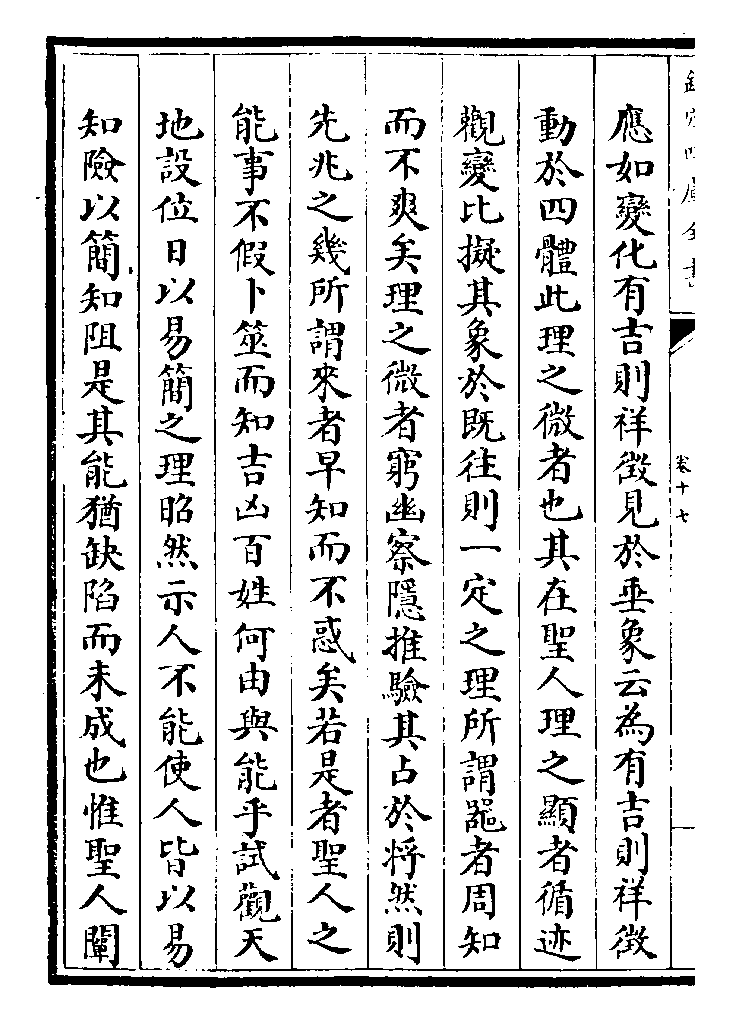 欽定四庫全書
卷十七
應如變化有吉則祥徵見於垂象云為有吉則祥徵
動於四體此理之微者也其在聖人理之顯者循迹
觀變比擬其象於既往則一定之理所謂器者周知
而不爽矣理之微者窮幽察隱推驗其占於將然則
先兆之幾所謂來者早知而不惑矣若是者聖人之
能事不假卜筮而知吉凶百姓何由與能乎試觀天
地設位日以易簡之理昭然示人不能使人皆以易
知險以簡知阻是其能猶缺陷而未成也惟聖人闡